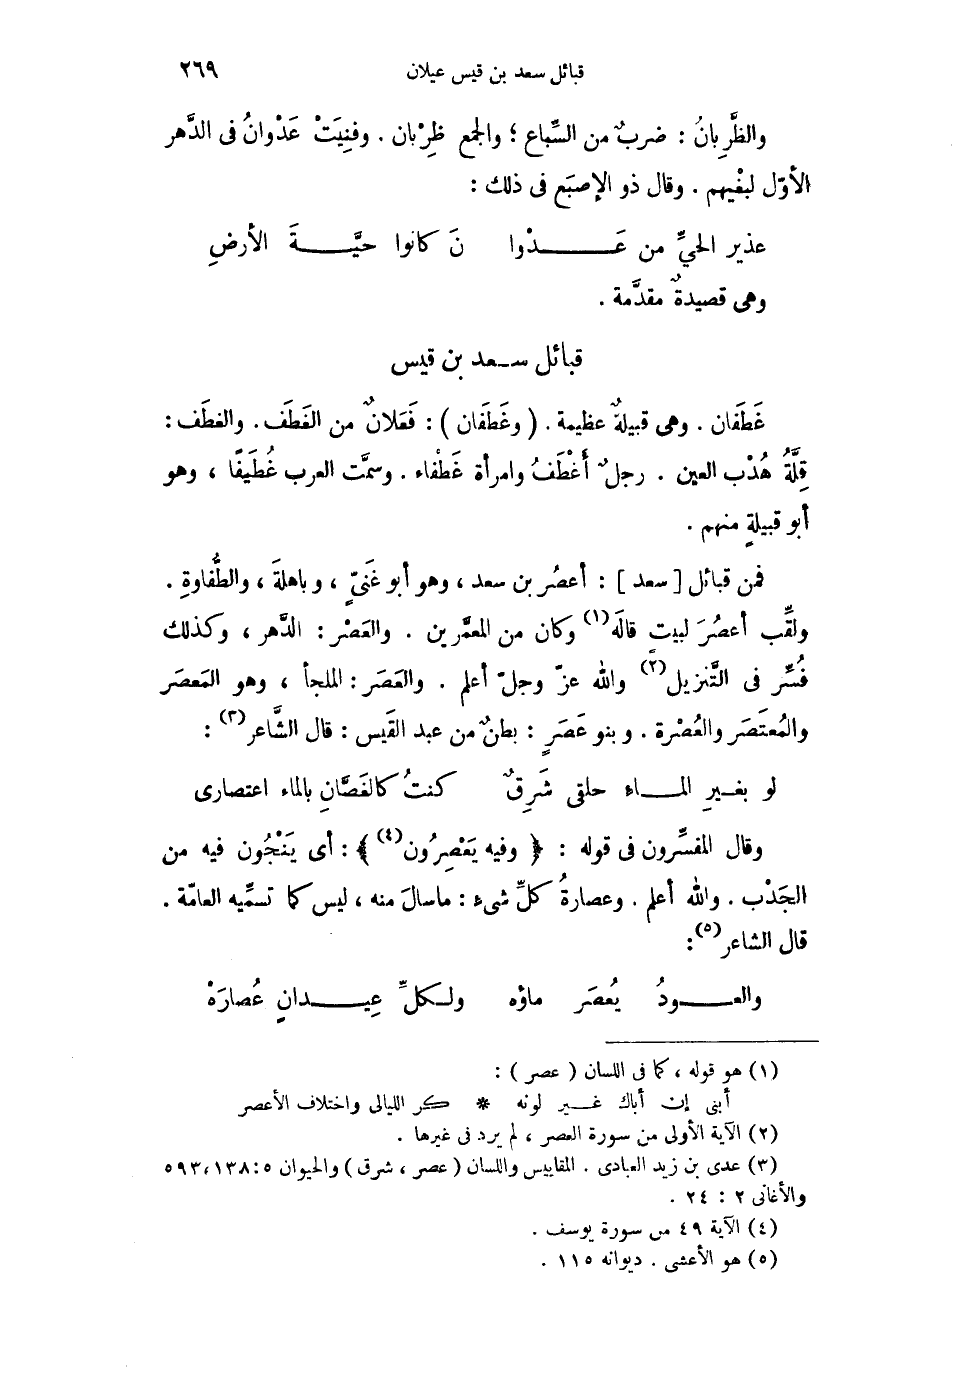 قبائل سعد بن قيس عيلان ٢٦٩
والظَّرِبانُ : ضربٌ من السِّباع ؛ والجمع ظِرْبان . وفنِيَتْ عَدْوانُ فى الدَّهر
الأوّل لبغْيهم . وقال ذو الإصبَع فى ذلك :
عذير الحيِّ من عَــدْوا نَ كانوا حيَّــةَ الأرضِ
وهى قصيدةٌ مقدَّمة .
قبائل سعد بن قيس
غَطَفان . وهى قبيلةٌ عظيمة . ( وغَطَفان ) : فَعَلانٌ من الغَطَف . والغطَف :
قِلَّةُ هُدْب العين . رجلٌ أَغْطَفُ وامرأة غَطْفاء . وسمَّت العرب غُطَيفًا ، وهو
أبو قبيلةٍ منهم .
فمن قبائل [ سعد ] : أعصُر بن سعد ، وهو أبو غَنىٍّ ، وباهلةَ ، والطُّفاوةِ .
ولقِّب أعصُرَ لبيتٍ قالَه(١) وكان من المعمَّرين . والعَصْر : الدَّهر ، وكذلك
فُسِّر فى التَّنزيل(٢) والله عزّ وجلّ أعلم . والعَصَر : الملجأ ، وهو المَعصَر
والمُعتَصَر والعُصْرة . وبنو عَصَرٍ : بطنٌ من عبد القَيس : قال الشَّاعر(٣) :
لو بغــيرِ المــاءِ حلقى شَرِقٌ كنتُ كالغَصَّانِ بالماء اعتصارى
وقال المفسِّرون فى قوله : ﴿ وفيه يَعْصِرُون(٤) ﴾ : أى يَنْجُون فيه من
الجَدْب . والله أعلم . وعصارةُ كلِّ شىء : ماسالَ منه ، ليس كما تسمِّيه العامّة .
قال الشاعر(٥) :
والعــودُ يُعصَر ماؤه ولكلِّ عِيــدانٍ عُصارَهْ
(١) هو قوله ، كما فى اللسان ( عصر ) :
أبنى إن أباك غــير لونه * كر الليالى واختلاف الأعصر
(٢) الآية الأولى من سورة العصر ، لم يرد فى غيرها .
(٣) عدى بن زيد العبادى . المقاييس واللسان ( عصر ، شرق ) والحيوان ٥ : ١٣٨ ، ٥٩٣
والأغانى ٢ : ٢٤ .
(٤) الآية ٤٩ من سورة يوسف .
(٥) هو الأعشى . ديوانه ١١٥ .